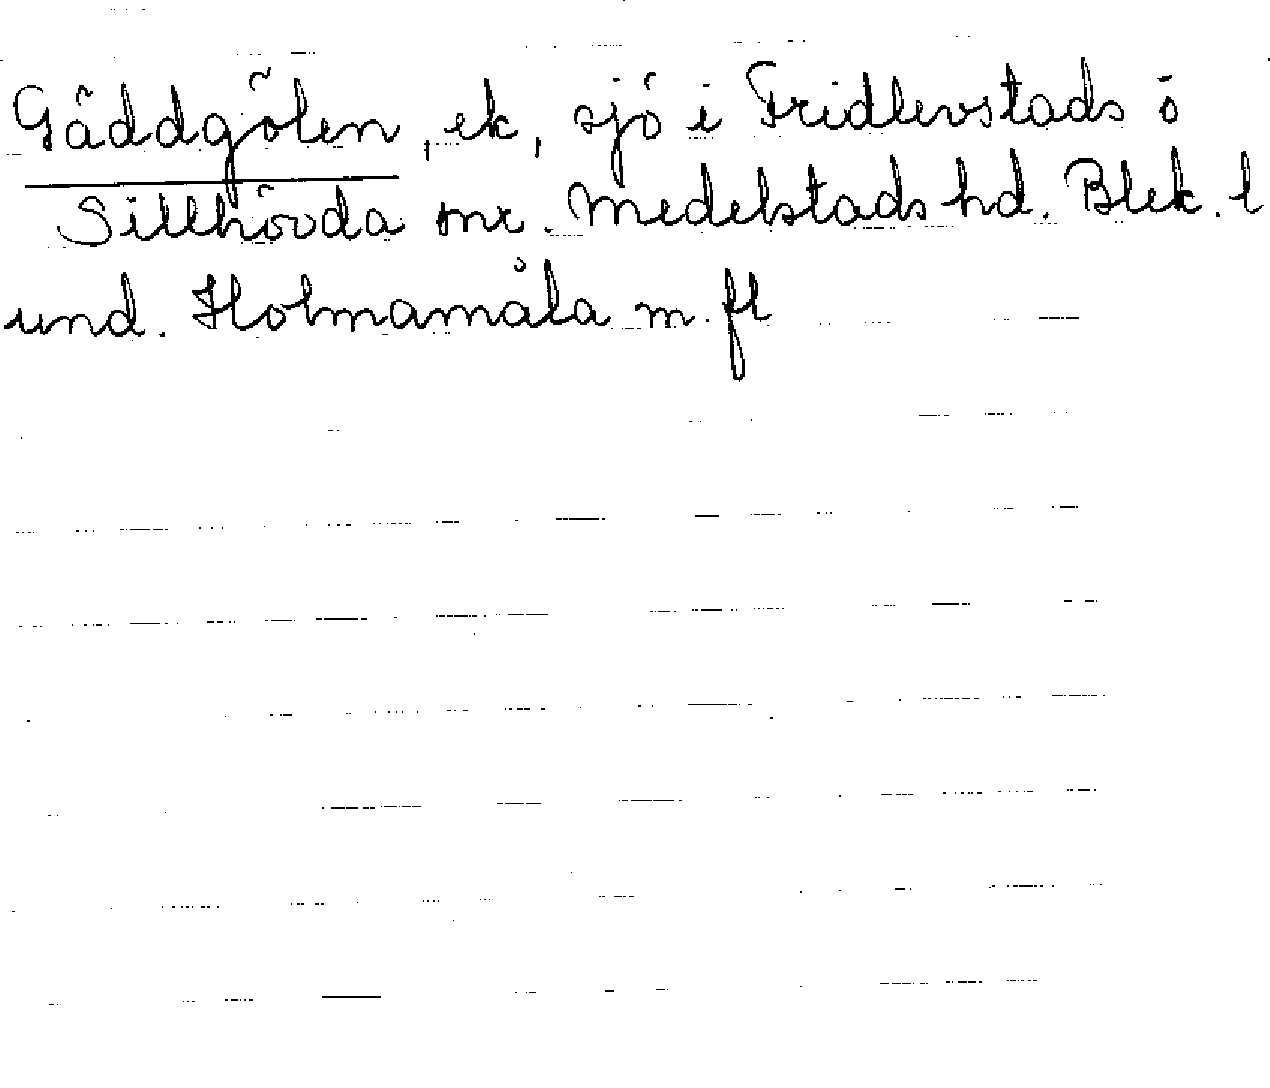 Gäddgölen, ek, sjö i Fridlevstads o
Sillhövda snr. Medelstads hd. Blek. l
und. Holmamåla m. fl